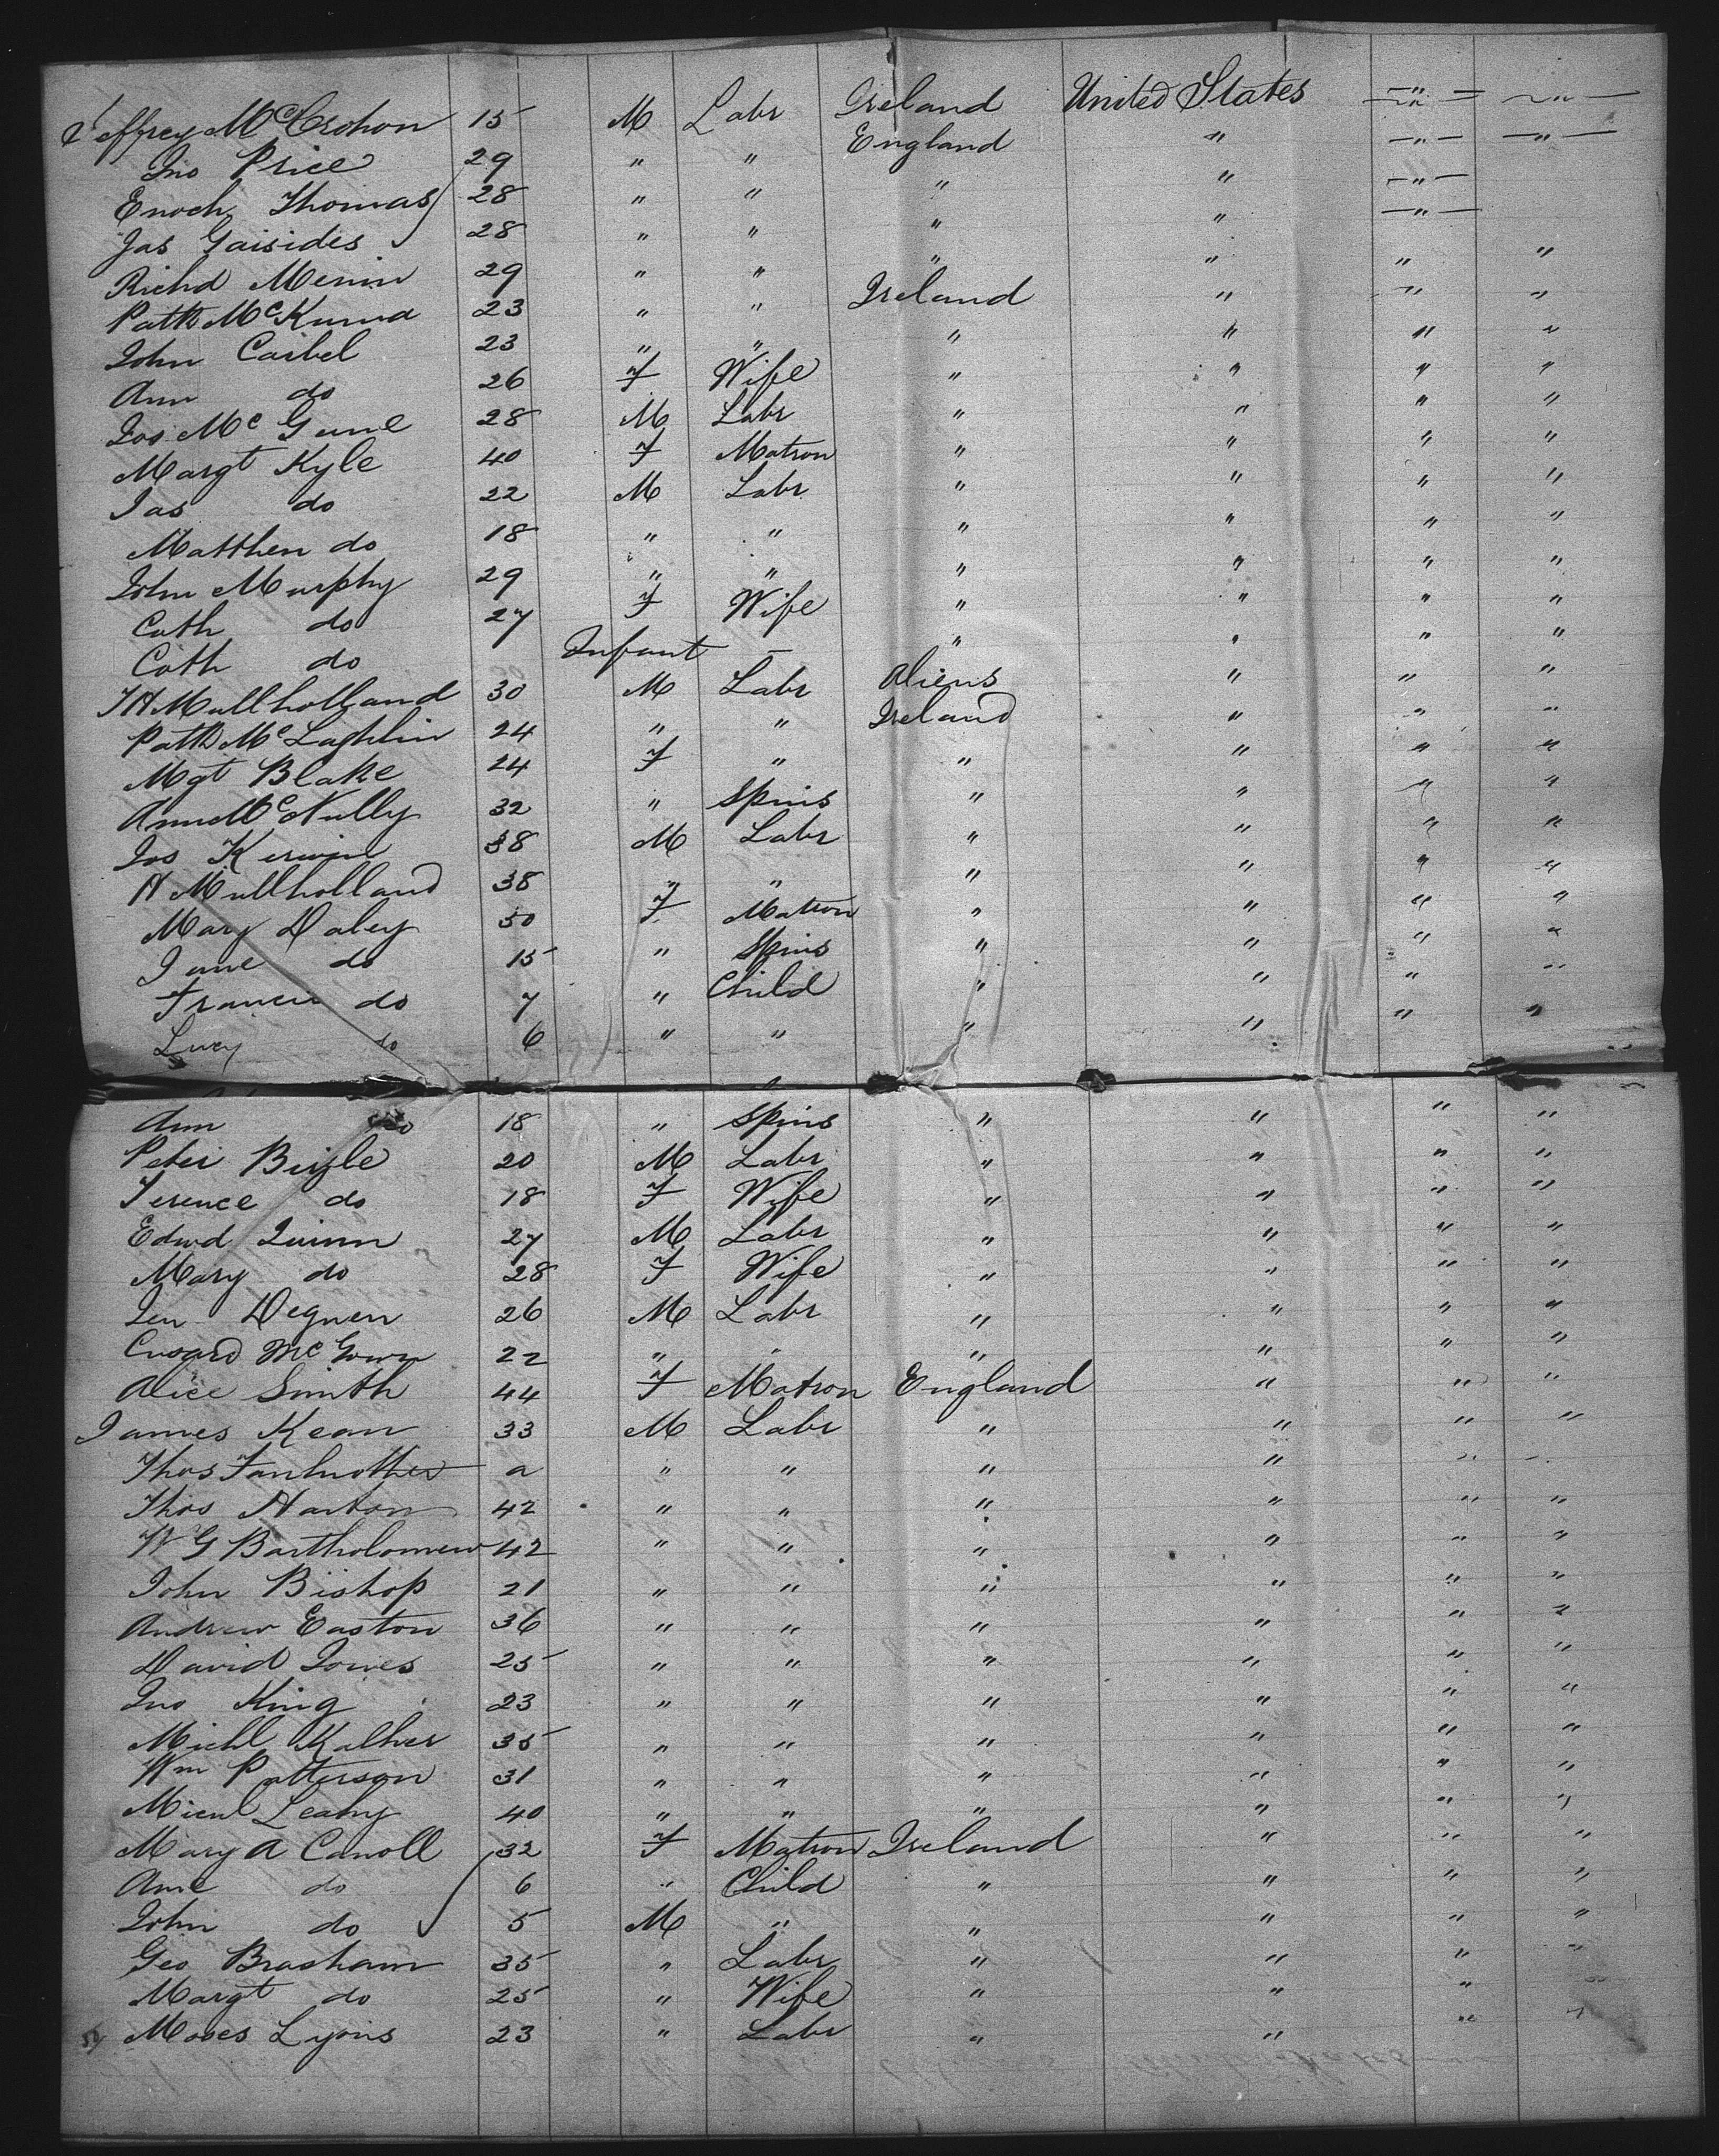 Jeffrey McCrohon 15 M Labr Ireland United States " "
Jno Price 29 " " England " " "
Enoch Thomas 28 " " " " "
Jas Gaisides 28 " " " " "
Richd Menin 29 " " " " " "
Patk McKunna 23 " " Ireland " " "
John Carbel 23 " " " " " "
Ann do 26 F Wife " " " "
Jos McGune 28 M Labr " " " "
Margt Kyle 40 F Matron " " " "
Jas do 22 M Labr " " " "
Matthew do 18 " " " " " "
John Murphy 29 " " " " " "
Cath do 27 F Wife " " " "
Cath do Infant — " " " "
J H Mullholland 30 M Labr Aliens " " "
Patk McLaghlin 24 " " Ireland " " "
Mgt Blake 24 F " " " " "
Ann McNully 32 " Spins " " " "
Jos Kerwin 38 M Labr " " " "
H Mullholland 38 " " " " " "
Mary Daley 50 F Matron " " " "
Jane do 15 " Spins " " " "
Francis do 7 " Child " " " "
Lucy do 6 " " " " " "
Ann do 18 " Spins " " " "
Peter Birgle 20 M Labr " " " "
Terence do 18 F Wife " " " "
Edwd Quinn 27 M Labr " " " "
Mary do 28 F Wife " " " "
Degnen 26 M Labr " " " "
McGown 22 " " " " " "
Alice Smith 44 F Matron England " " "
James Kean 33 M Labr " " " "
Thos a " " " " " "
Thos Harton 42 " " " " " "
W G Bartholomew 42 " " " " " "
John Bishop 21 " " " " " "
Andrew Easton 36 " " " " " "
David Jones 25 " " " " " "
Jno King 23 " " " " " "
Michl Kalher 35 " " " " " "
Wm Patterson 31 " " " " " "
Micul Leahy 40 " " " " " "
Mary A Caroll 32 F Matron Ireland " " "
Ane do 6 " Child " " " "
John do 5 M " " " " "
Geo Brasham 35 " Labr " " " "
Margt do 25 " Wife " " " "
Moses Lyons 23 " Labr " " " "